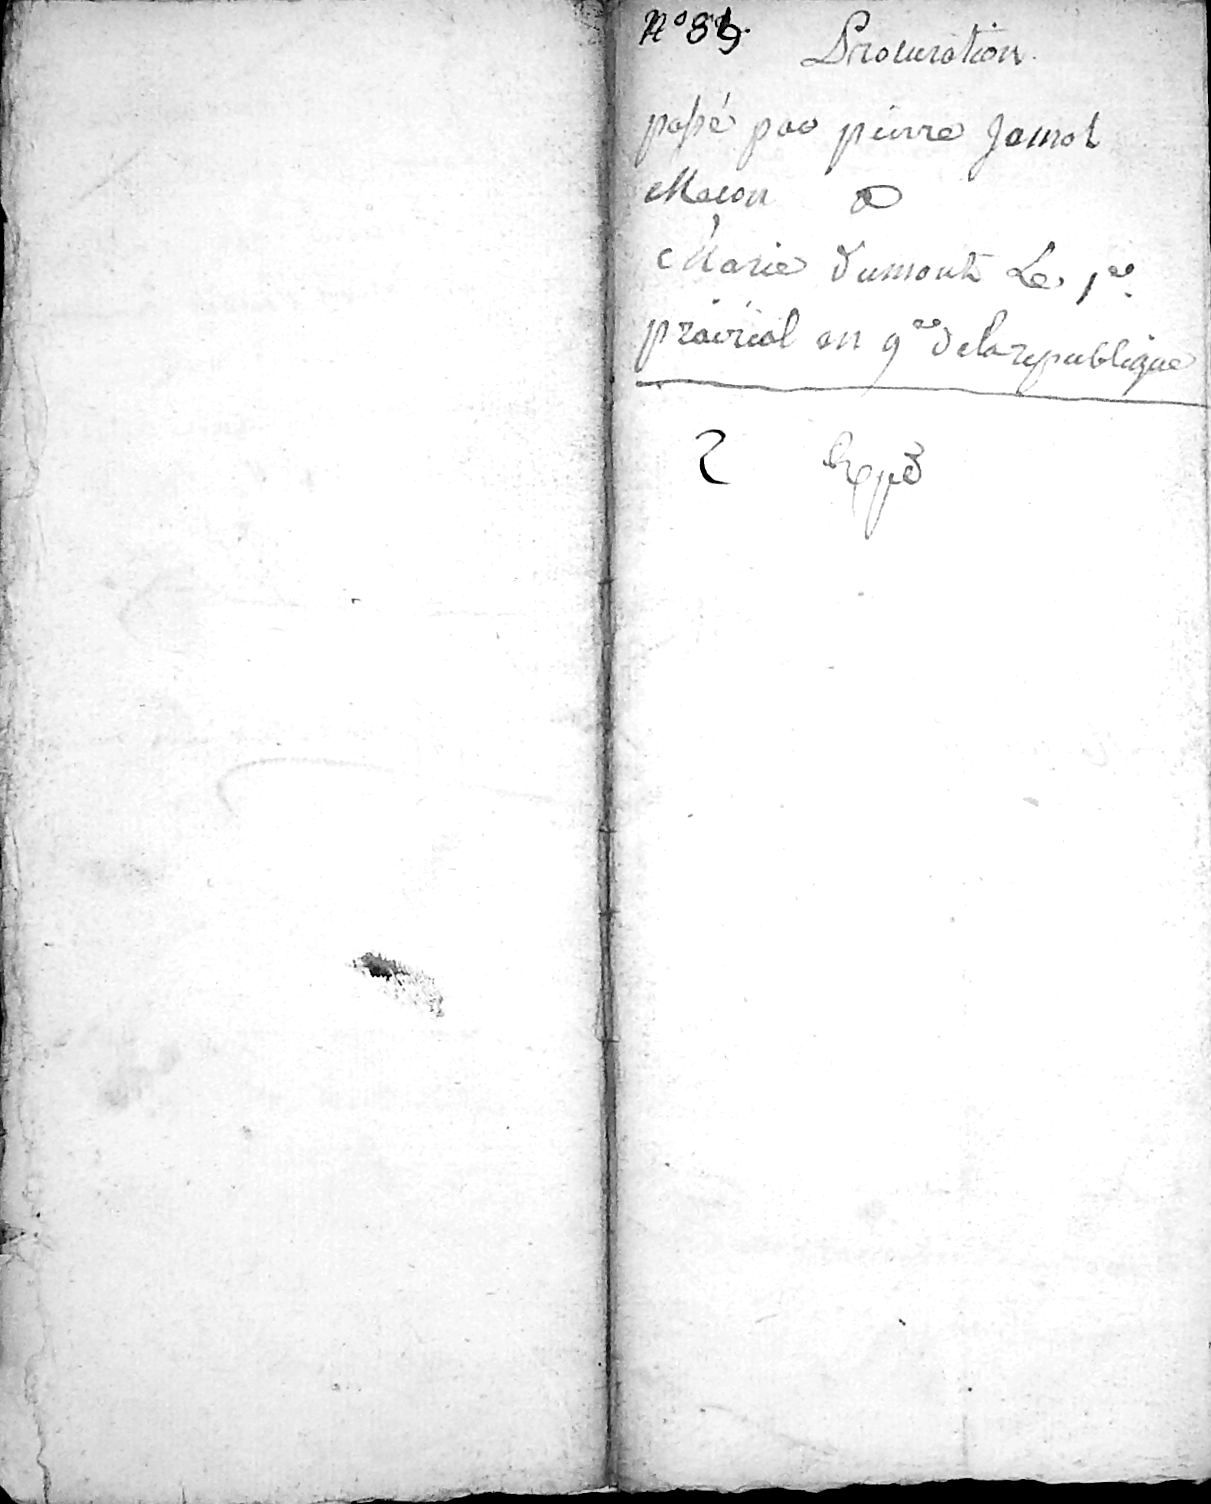 Procuration
passé par pierre Jamot
Macon a
Marie Dumont Le 1er
prairial an 9e de la republique
2